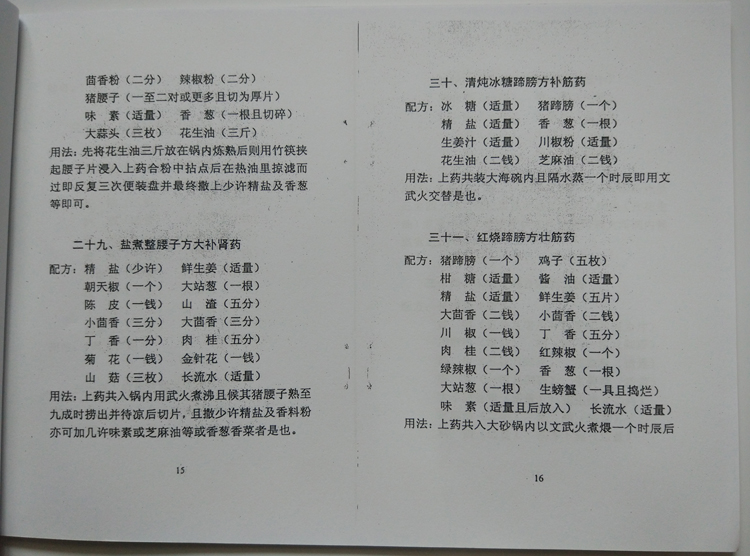 茴香粉（二分） 辣椒粉（二分）
猪腰子（一至二对或更多且切为厚片）
味 素（适量） 香 葱（一根且切碎）
大蒜头（三枚） 花生油（三斤）
用法：先将花生油三斤放在锅内炼熟后则用竹筷挟
起腰子片浸入上药合粉中拈点后在热油里掠滤而
过即反复三次便装盘并最终撒上少许精盐及香葱
等即可。
二十九、盐煮整腰子方大补肾药
配方：精 盐（少许） 鲜生姜（适量）
朝天椒（一个） 大站葱（一根）
陈 皮（一钱） 山 渣（五分）
小茴香（三分） 大茴香（三分）
丁 香（一分） 肉 桂（五分）
菊 花（一钱） 金针花（一钱）
山 菇（三枚） 长流水（适量）
用法：上药共入锅内用武火煮沸且候其猪腰子熟至
九成时捞出并待凉后切片，且撒少许精盐及香料粉
亦可加几许味素或芝麻油等或香葱香菜者是也。
15
三十、清炖冰糖蹄膀方补筋药
配方：冰 糖（适量） 猪蹄膀（一个）
精 盐（适量） 香 葱（一根）
生姜汁（适量） 川椒粉（适量）
花生油（二钱） 芝麻油（二钱）
用法：上药共装大海碗内且隔水蒸一个时辰即用文
武火交替是也。
三十一、红烧蹄膀方壮筋药
配方：猪蹄膀（一个） 鸡子（五枚）
柑 糖（适量） 酱 油（适量）
精 盐（适量） 鲜生姜（五片）
大茴香（二钱） 小茴香（二钱）
川 椒（一钱） 丁 香（五分）
肉 桂（二钱） 红辣椒（一个）
绿辣椒（一个） 香 葱（一根）
大站葱（一根） 生螃蟹（一具且捣烂）
味 素（适量且后放入） 长流水（适量）
用法：上药共入大砂锅内以文武火煮煨一个时辰后
16